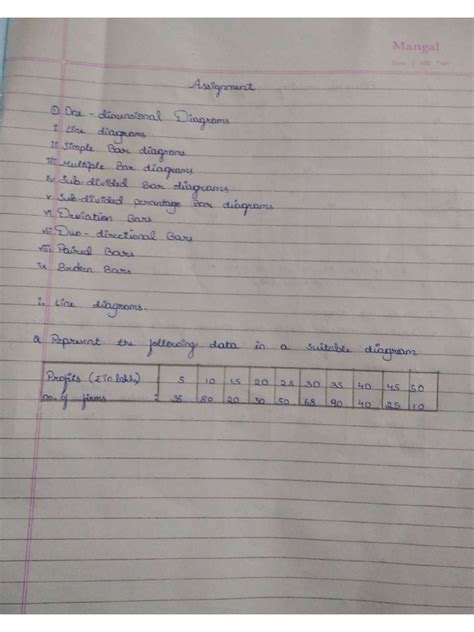 Mangal
Assignment
① One - dimensional Diagrams
i Line diagrams
ii Simple Bar diagrams
iii Multiple Bar diagrams
iv Sub-divided Bar diagrams
v Sub-divided percentage Bar diagrams
vi Deviation Bars
vii Duo - directional Bars
viii Paired Bars
ix Broken Bars
i, Line diagrams.
Q Represent the following data in a suitable diagram
Profits (₹ in lakhs) 5 10 15 20 25 30 35 40 45 50
no. of firms : 35 80 20 30 50 68 90 40 25 10